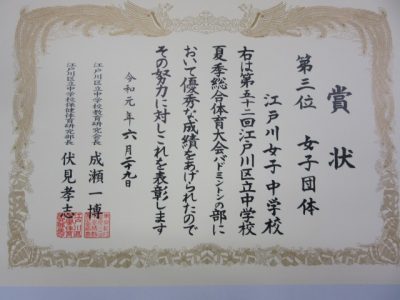 賞状
第三位 女子団体
江戸川女子中学校
右は第五十二回江戸川区立中学校
夏季総合体育大会バドミントンの部に
おいて優秀な成績をあげられたので
その努力に対しこれを表彰します
令和元年六月二九日
江戸川区立中学校教育研究会長 成瀬一博
江戸川区立中学校保健体育研究部長 伏見孝志